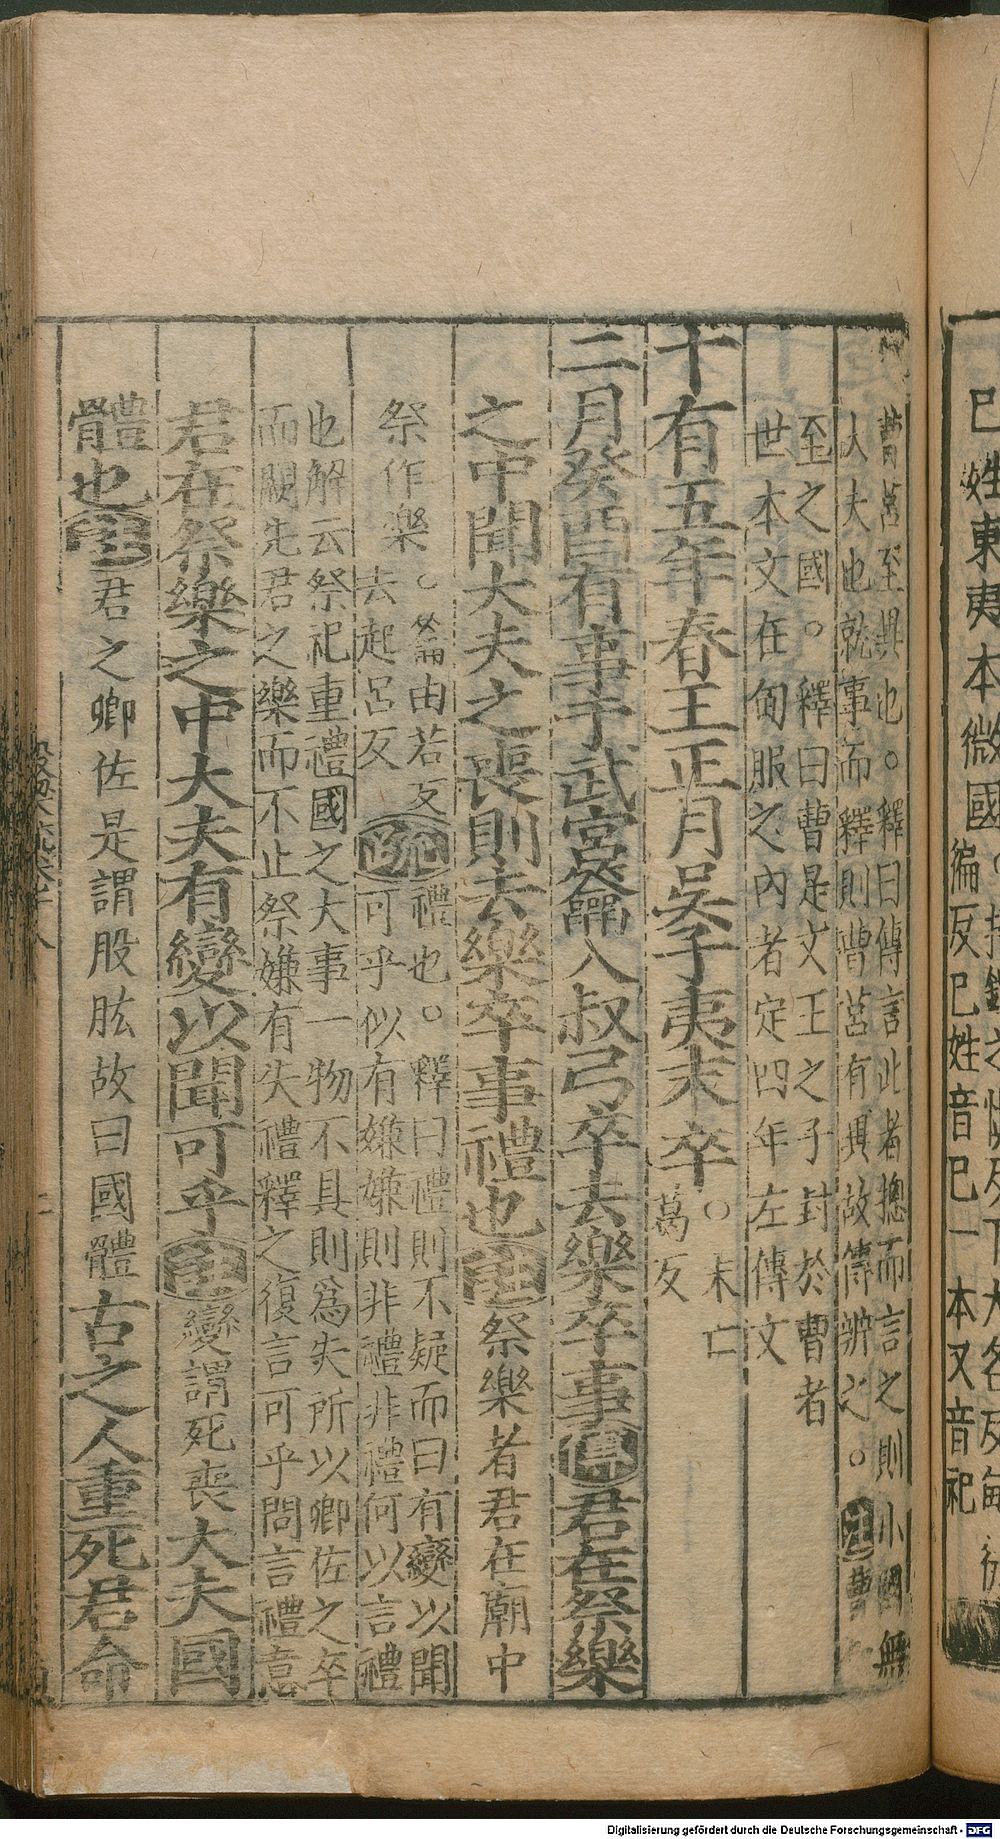 巳姓東夷本微國
編反巳姓音巳一本又音祀
曹莒至異也○釋曰傳言此者摠而言之則小國無
大夫也就事而釋則曹莒有異故傳辨之○注曹
至之國○釋曰曹是文王之子封於曹者
世本文在甸服之內者定四年左傳文
十有五年春王正月吳子夷末卒○末亡
葛反
二月癸酉有事于武宮籥入叔弓卒去樂卒事傳君在祭樂
之中聞大夫之喪則去樂卒事禮也注祭樂者君在廟中
祭作樂○籥由若反疏禮也○釋曰禮則不疑而曰有變以聞
去起呂反可乎似有嫌嫌則非禮非禮何以言禮
也解云祭祀重禮國之大事一物不具則爲失所以卿佐之卒
而闕先君之樂而不止祭嫌有失禮釋之復言可乎問言禮意
君在祭樂之中大夫有變以聞可乎注變謂死喪大夫國
體也注君之卿佐是謂股肱故曰國體古之人重死君命
Digitalisierung gefördert durch die Deutsche Forschungsgemeinschaft - DFG